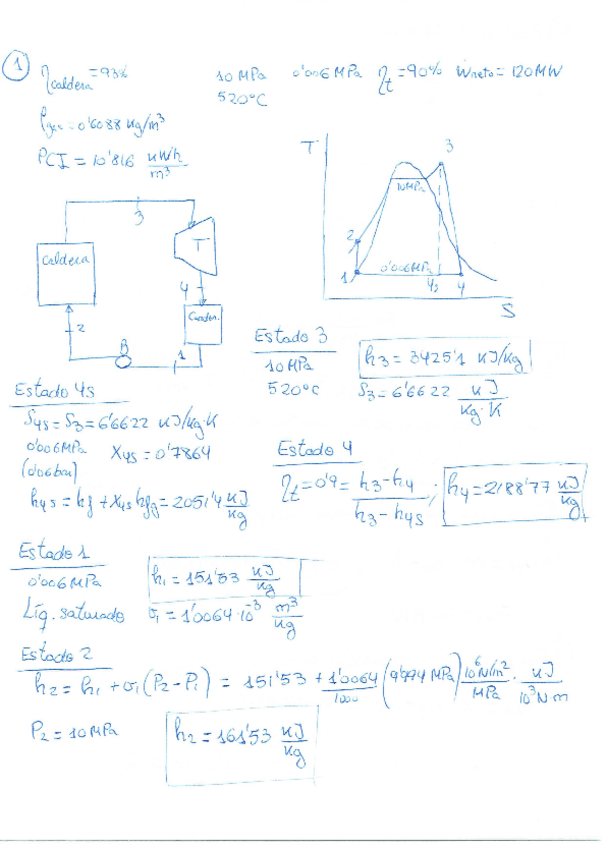 1 η caldera = 93% 10 MPa 0'006 MPa ηt = 90% Wneto = 120MW
520°C
ρgas = 0'6088 kg/m³
PCI = 10'816 kWh/m³
T
3
10MPa
2
0'006MPa
1
4s 4
S
3
Caldera
T
4
Conden.
2
B
1
Estado 3
10 MPa
520°C
h3 = 3425'1 kJ/kg
S3 = 6'6622 kJ/kg·K
Estado 4s
S4s = S3 = 6'6622 kJ/kg·K
0'006MPa X4s = 0'7864
(0'06bar)
h4s = hf + X4s hfg = 2051'4 kJ/kg
Estado 4
ηt = 0'9 = h3-h4/h3-h4s ; h4 = 2188'77 kJ/kg
Estado 1
0'006 MPa h1 = 151'53 kJ/kg
Líq. saturado v1 = 1'0064·10⁻³ m³/kg
Estado 2
h2 = h1 + v1 (P2-P1) = 151'53 + 1'0064/1000 (9'994 MPa) 10⁶N/m²/MPa · kJ/10³N·m
P2 = 10 MPa h2 = 161'53 kJ/kg